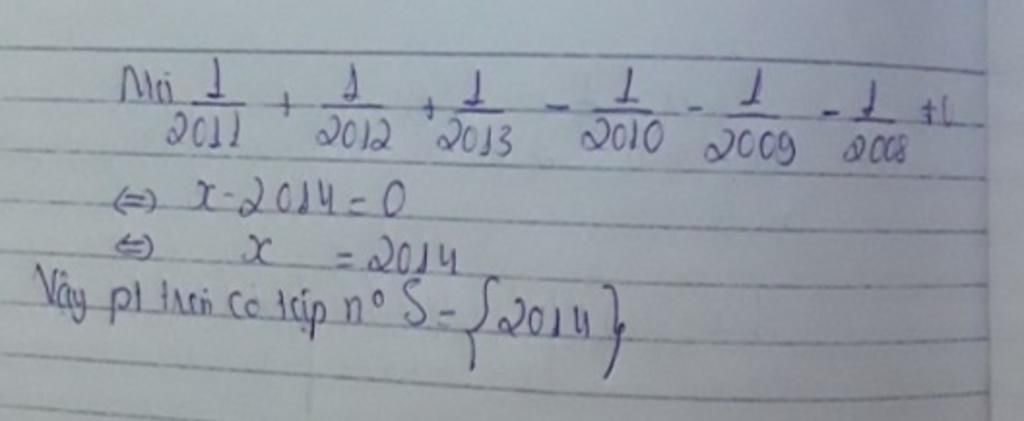 Mà 1/2011 + 1/2012 + 1/2013 - 1/2010 - 1/2009 - 1/2008 ≠
⇔ x - 2014 = 0
⇔ x = 2014
Vậy pt trên có tập n° S = {2014}